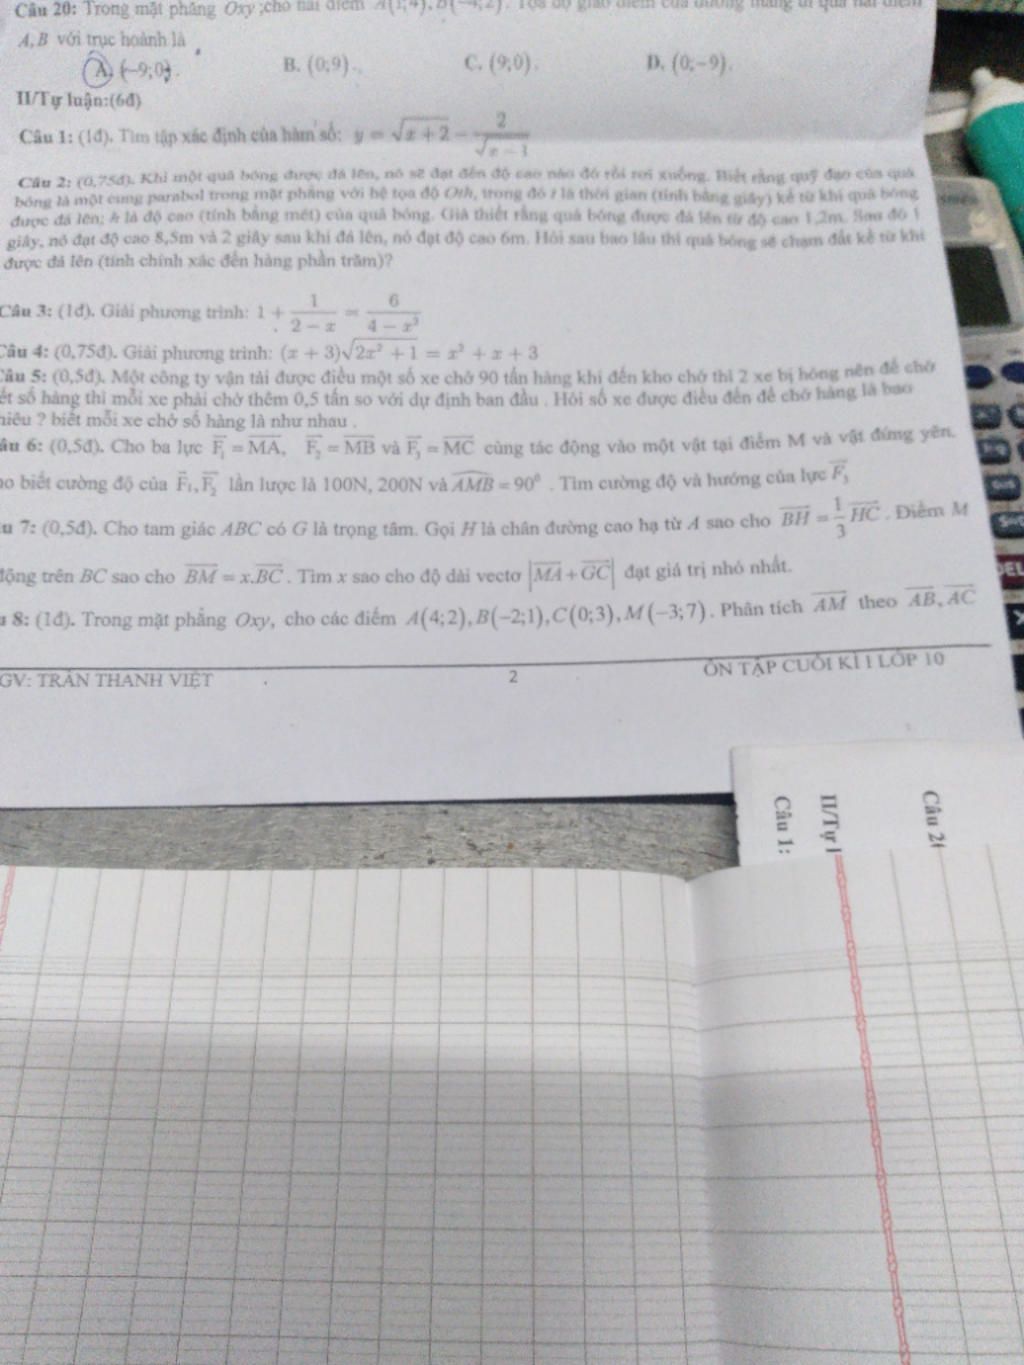 Câu 20: Trong mặt phẳng Oxy ;cho hai điểm A(1;4), B(-4;2). Tọa độ giao điểm của đường thẳng đi qua hai điểm
A, B với trục hoành là
A. (-9;0). B. (0;9). C. (9;0). D. (0;-9).
II/Tự luận:(6đ)
Câu 1: (1đ). Tìm tập xác định của hàm số: y = √(x+2) - 2/√(x-1)
Câu 2: (0,75đ). Khi một quả bóng được đá lên, nó sẽ đạt đến độ cao nào đó rồi rơi xuống. Biết rằng quỹ đạo của quả
bóng là một cung parabol trong mặt phẳng với hệ tọa độ Oth, trong đó t là thời gian (tính bằng giây) kể từ khi quả bóng
được đá lên; h là độ cao (tính bằng mét) của quả bóng. Giả thiết rằng quả bóng được đá lên từ độ cao 1,2m. Sau đó 1
giây, nó đạt độ cao 8,5m và 2 giây sau khi đá lên, nó đạt độ cao 6m. Hỏi sau bao lâu thì quả bóng sẽ chạm đất kể từ khi
được đá lên (tính chính xác đến hàng phần trăm)?
Câu 3: (1đ). Giải phương trình: 1 + 1/(2-x) = 6/(4-x²)
Câu 4: (0,75đ). Giải phương trình: (x+3)√(2x²+1) = x²+x+3
Câu 5: (0,5đ). Một công ty vận tải được điều một số xe chở 90 tấn hàng khi đến kho chở thì 2 xe bị hỏng nên để chở
ết số hàng thì mỗi xe phải chở thêm 0,5 tấn so với dự định ban đầu . Hỏi số xe được điều đến để chở hàng là bao
hiêu ? biết mỗi xe chở số hàng là như nhau .
âu 6: (0,5đ). Cho ba lực F⃗₁ = MA⃗, F⃗₂ = MB⃗ và F⃗₃ = MC⃗ cùng tác động vào một vật tại điểm M và vật đứng yên.
ho biết cường độ của F⃗₁, F⃗₂ lần lược là 100N, 200N và AMB = 90° . Tìm cường độ và hướng của lực F⃗₃
u 7: (0,5đ). Cho tam giác ABC có G là trọng tâm. Gọi H là chân đường cao hạ từ A sao cho BH⃗ = 1/3 HC⃗ . Điểm M
động trên BC sao cho BM⃗ = x.BC⃗ . Tìm x sao cho độ dài vectơ |MA⃗ + GC⃗| đạt giá trị nhỏ nhất.
u 8: (1đ). Trong mặt phẳng Oxy, cho các điểm A(4;2), B(-2;1), C(0;3), M(-3;7). Phân tích AM⃗ theo AB⃗, AC⃗
GV: TRẦN THANH VIỆT 2 ÔN TẬP CUỐI KÌ I LỚP 10
Câu 2
II/Tự l
Câu 1: